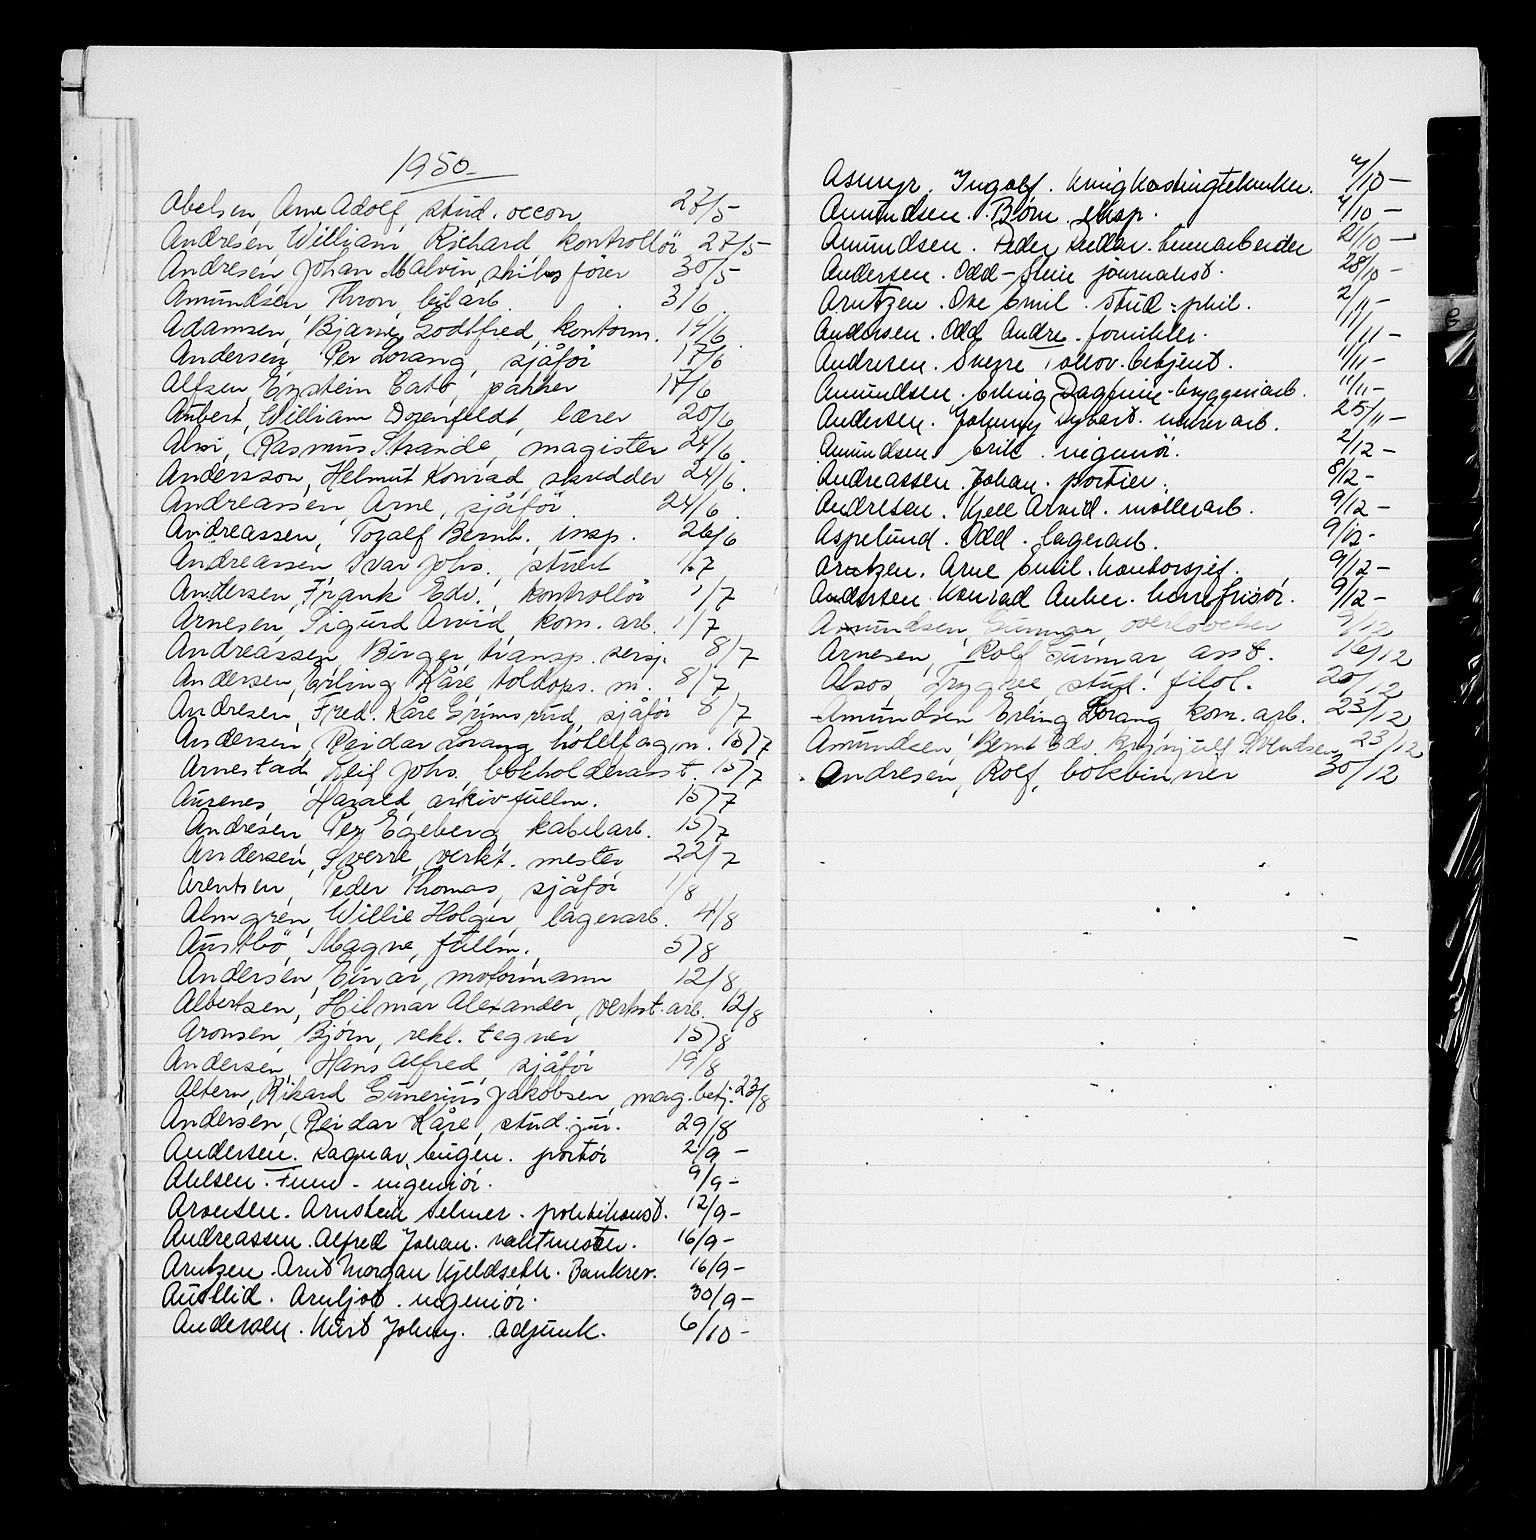 1950
Abelsen, Arne Adolf stud. occon 27/5
Andresen, William, Richard, kontrollör 27/5-
Andresen, Johan Malvin, skibsförer 30/5
Amundsen, Thron, bilarb. 3/6
Adamsen, Bjarne Godtfred, kontorm. 17/6
Andersen, Per Lorang, sjåför 17/6
Alfsen, Eystein Cato, pakker 17/6
Aubert, William, lærer 20/6
Rasmus Strande, magister 24/6
Andersson, Helmut Konrad, skredder 24/6
Andreassen, Arne, sjåför 24/6
Andreassen, Toralf Bernh. insp. 26/6
Andreassen, Ivar Johs., stuert 1/7
Andersen, Frank Edv. kontrollör 1/7
Arnesen, Sigurd Arvid, kom. arb. 1/7
Andreassen, Birger, transp. sersj. 8/7
Andersen, Erling Kåre, toldops. m. 8/7
Andresen, Fred. Kåre Grimsrud, sjåför 8/7
Andersen, Reidar Lorang, hotellfagm. 15/7
Arnestad, Leif Johs. bokholderasst. 15/7
Aurenes, Harald, arkivfullm. 15/7
Andresen, Per Egeberg, kabelarb. 15/7
Andersen, Sverre, verkt. mester 22/7
Arentsen, Peder Thomas, sjåför 1/8
Almgren, Willie Holger, lagerarb. 4/8
Austbö, Magne, fullm. 5/8
Andersen, Einar, motormann 12/8
Albertsen, Hilmar Alexander, verkst. arb. 12/8
Aronsen, Bjørn, rekl. tegner 15/8
Andersen, Hans Alfred, sjåför 19/8
Altern, Rikard Gunerius Jakobsen, mag. betj. 23/8
Andersen, Reidar Kåre, stud. jur. 29/8
Andersen. Ragnar, Eugen. portör 2/9 -
Ahlsen. Finn - ingeniör. 9/9-
Arnstein Selmer. politikonst. 12/9-
Andreassen. Alfred Johan. vaktmester. 16/9-
Arntzen. Arnt Morgan Kjeldseth. Bankrev. 16/9-
Austlid. Arnljot. ingeniör. 30/9-
Andersen. Kurt Johny. Adjunk. 6/10-
Ingolf. 7/10-
Amundsen. Björn. eksp. 7/10-
Amundsen. Peder 21/10-
Andersen. Odd-Stein journalist. 28/10-
Arntzen. Ove Emil. stud. phil. 2/11-
Andersen. Odd Andre. formiller. 11/11-
Andresen. Sverre, betjent. 11/11-
Amundsen. Erling Dagfinn. bryggeriarb. 11/11-
Andersen. Johnny Dybart. murerarb. 25/11-
Amundsen. Erik. ingeniör. 2/12-
Andreassen. Johan. portier. 8/12-
Andresen. Kjell Arvid. möllerarb. 9/12-
Aspelund. Odd. lagerarb. 9/12-
Arntzen. Arne Emil. kontorsjef. 9/12-
Andersen. Konrad Anker. herrefrisör. 9/12-
Amundsen, Gunnar, 9/12
Arnesen, Rolf Gunnar, asst. 16/12
Alsos, Trygve, stud. filol. 20/12
Amundsen, Erling Lorang, kom. arb. 23/12
Amundsen, Bernt Edv. 23/12
Andresen, Rolf, bokbinner 30/12